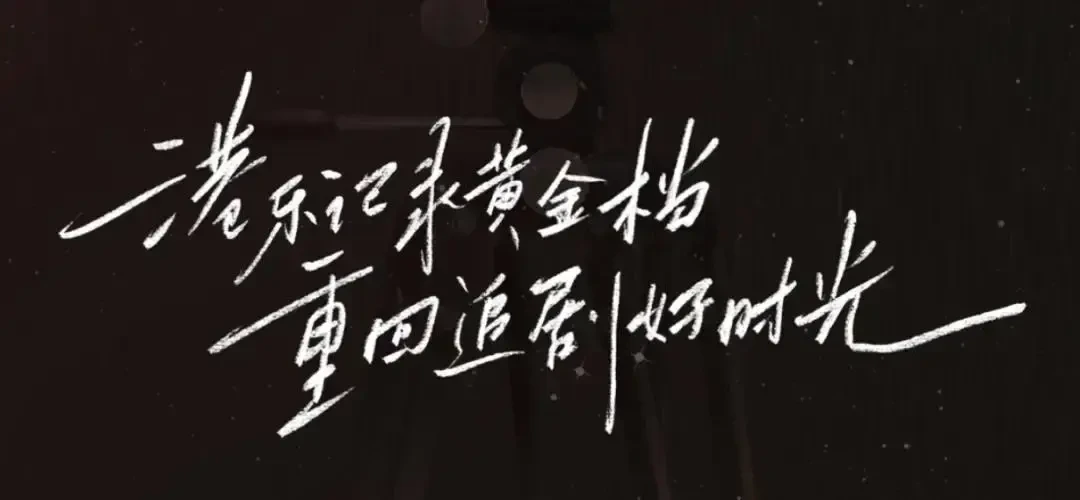 港乐记录黄金档
重回追剧好时光